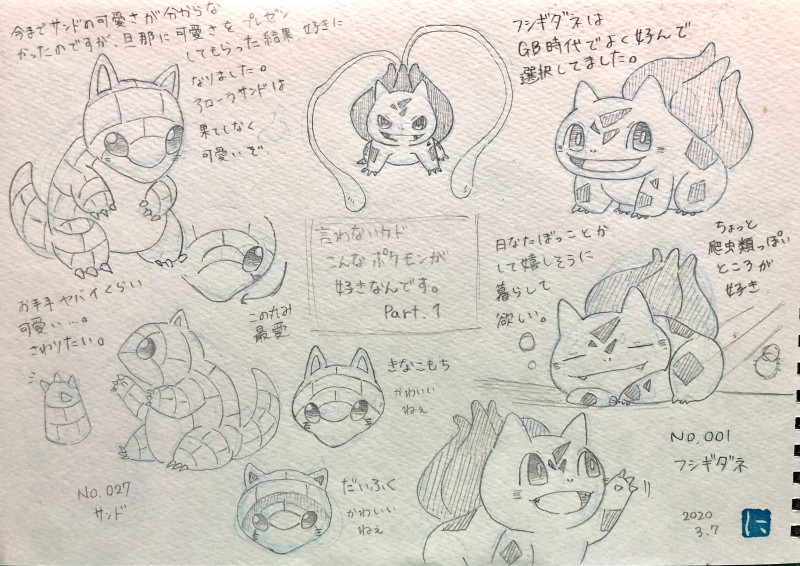 今までサンドの可愛さが分からな
かったのですが、旦那に可愛さをプレゼン
してもらった結果 好きに
なりました。
アローラサンドは
果てしなく
可愛いぞ
フシギダネは
GB時代でよく好んで
選択してました。
言わないカド
こんなポケモンが
好きなんです。
Part.1
日なたぼっことか
して嬉しそうに
暮らして
欲しい。
ちょっと
爬虫類っぽい
ところが
好き
お手手ヤバイくらい
可愛い…。
さわりたい。
この丸み
最愛
きなこもち
かわいい
ねぇ
だいふく
かわいい
ねぇ
No.027
サンド
No.001
フシギダネ
2020
3.7
に